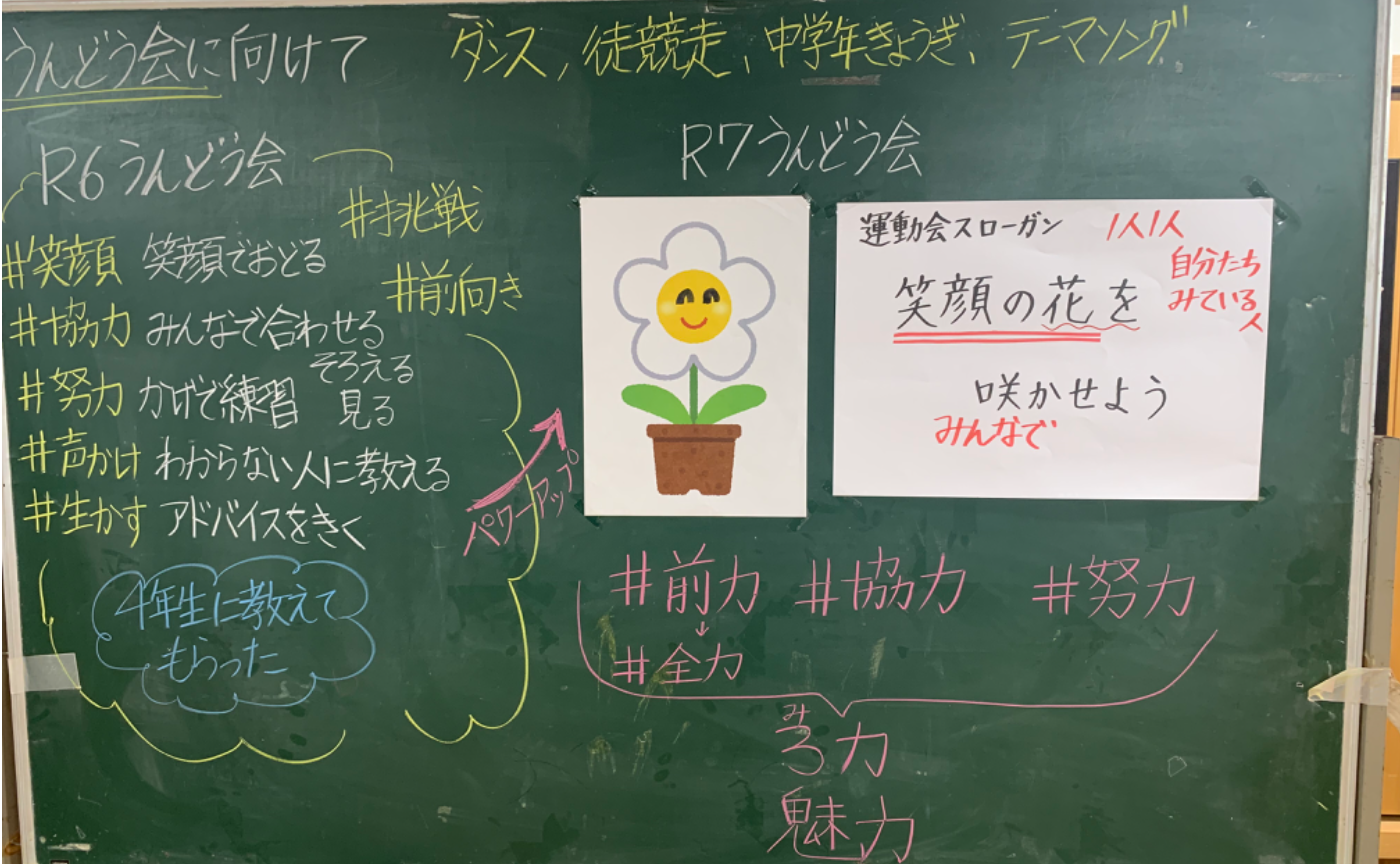 うんどう会に向けて
ダンス,徒競走、中学年きょうぎ、テーマソング
R6うんどう会
#挑戦
#笑顔 笑顔でおどる
#前向き
#協力 みんなで合わせる
そろえる
#努力 かげで練習 見る
#声かけ わからない人に教える
#生かす アドバイスをきく
4年生に教えて
もらった
パワーアップ
R7うんどう会
運動会スローガン
1人1人
自分たち
みている
人
笑顔の花を
咲かせよう
みんなで
#前力 #協力 #努力
↓
#全力
み
ろ力
魅力